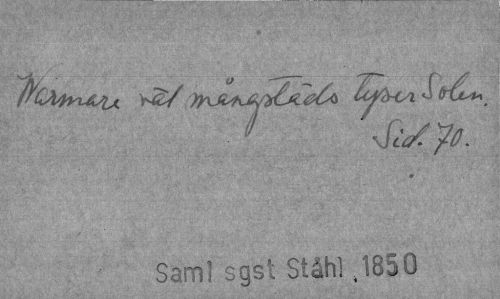 Warmare väl mångstäds lyser Solen.
Sid. 70.
Saml sgst Ståhl 1850